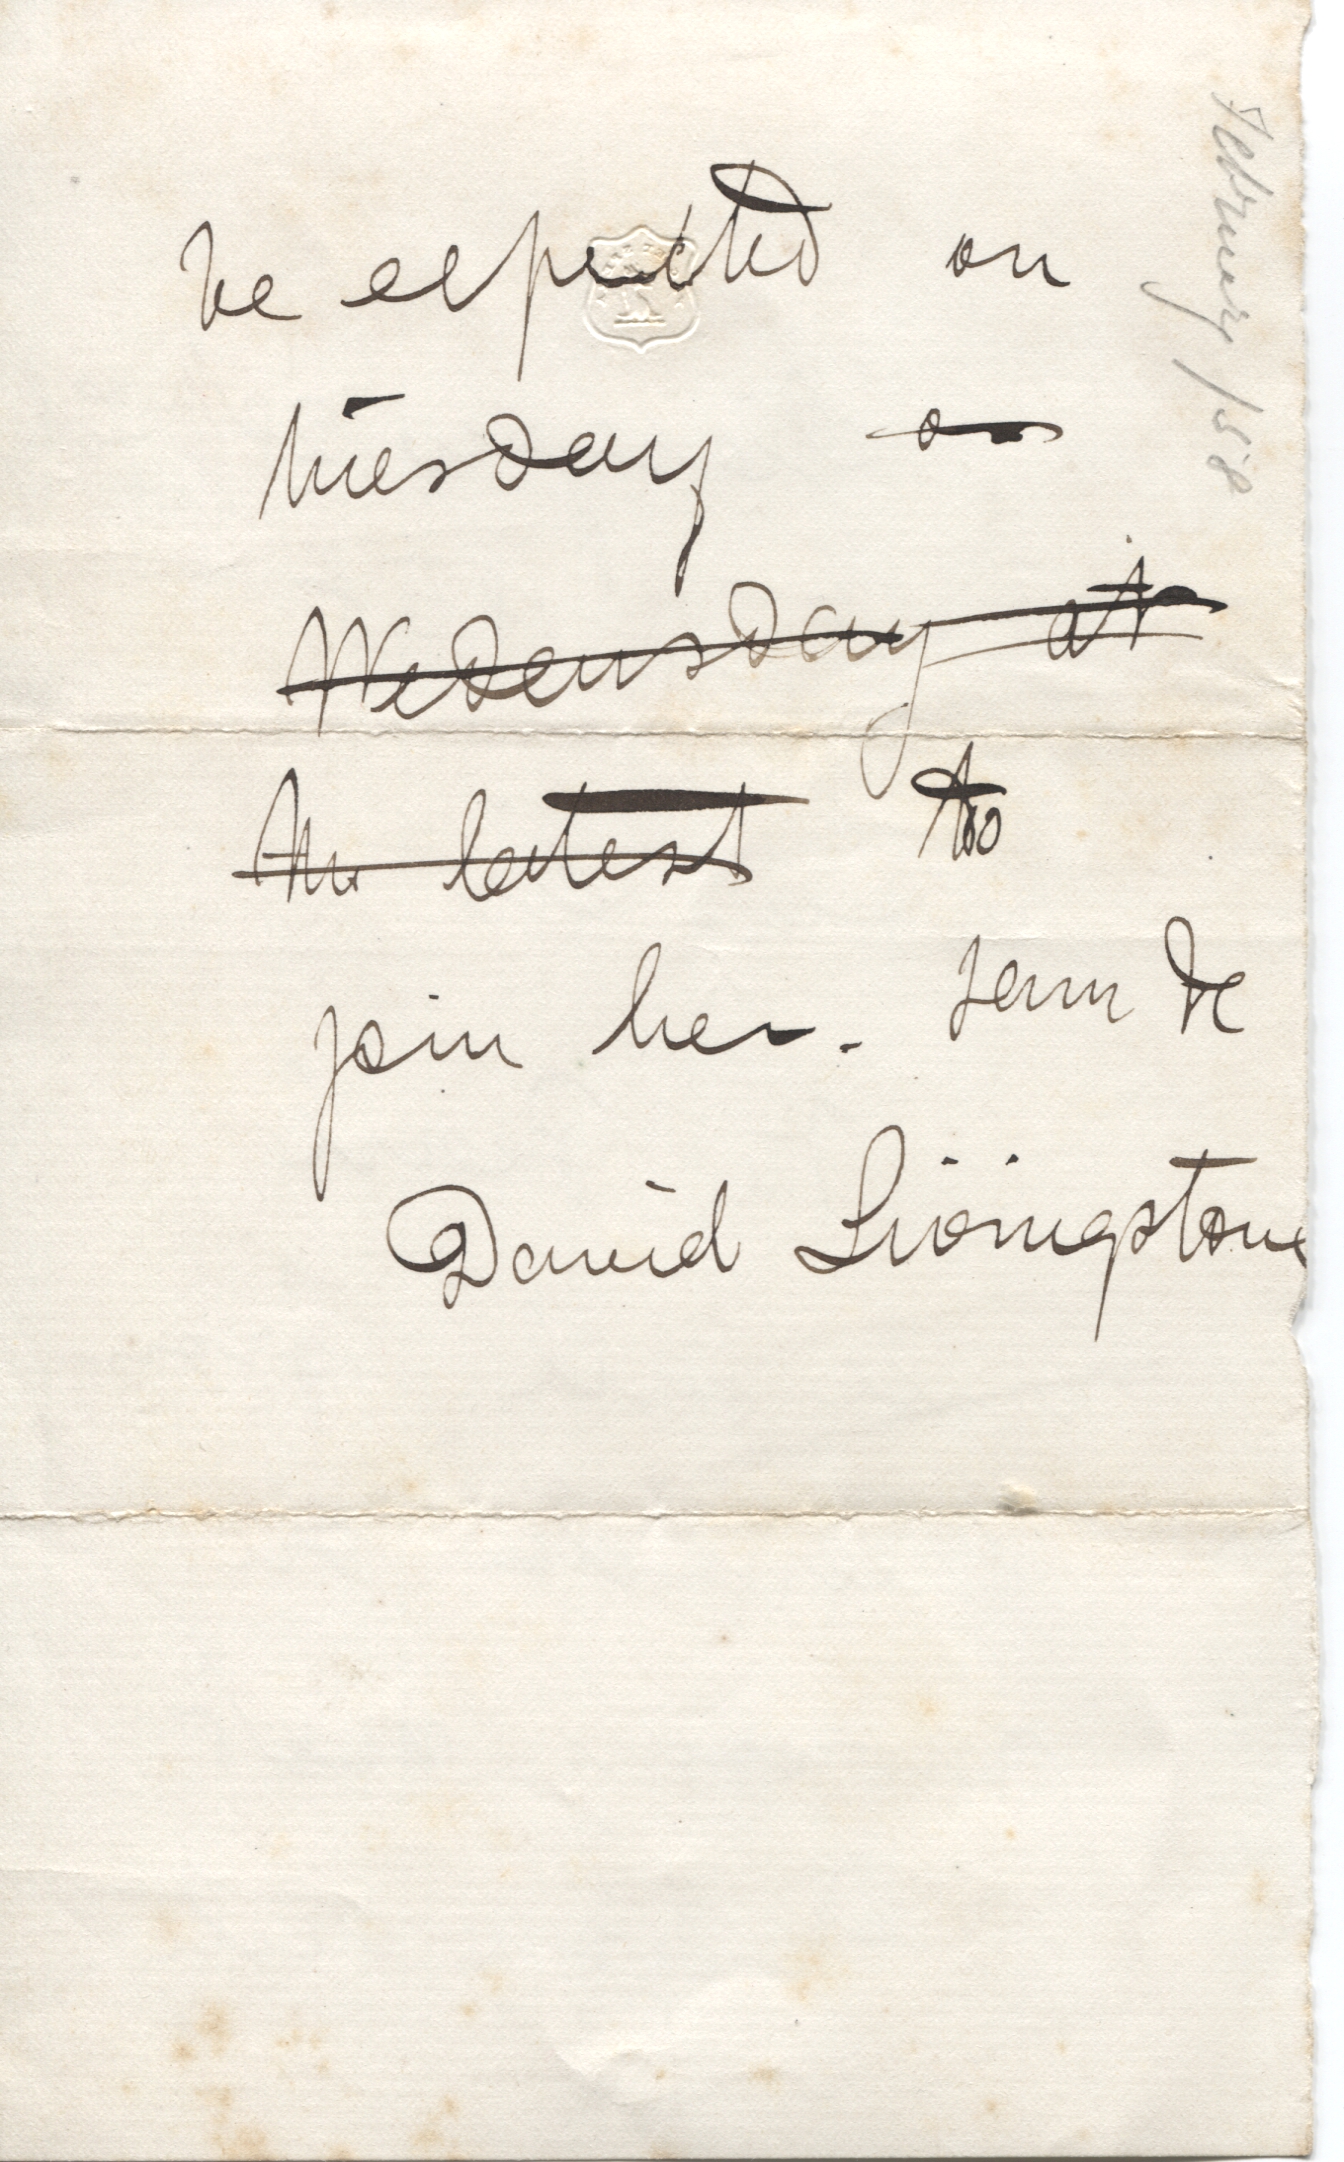 be expected on
tuesday or
Wedensday at
the latest to
join her. Yours &c
David Livingstone
February /58